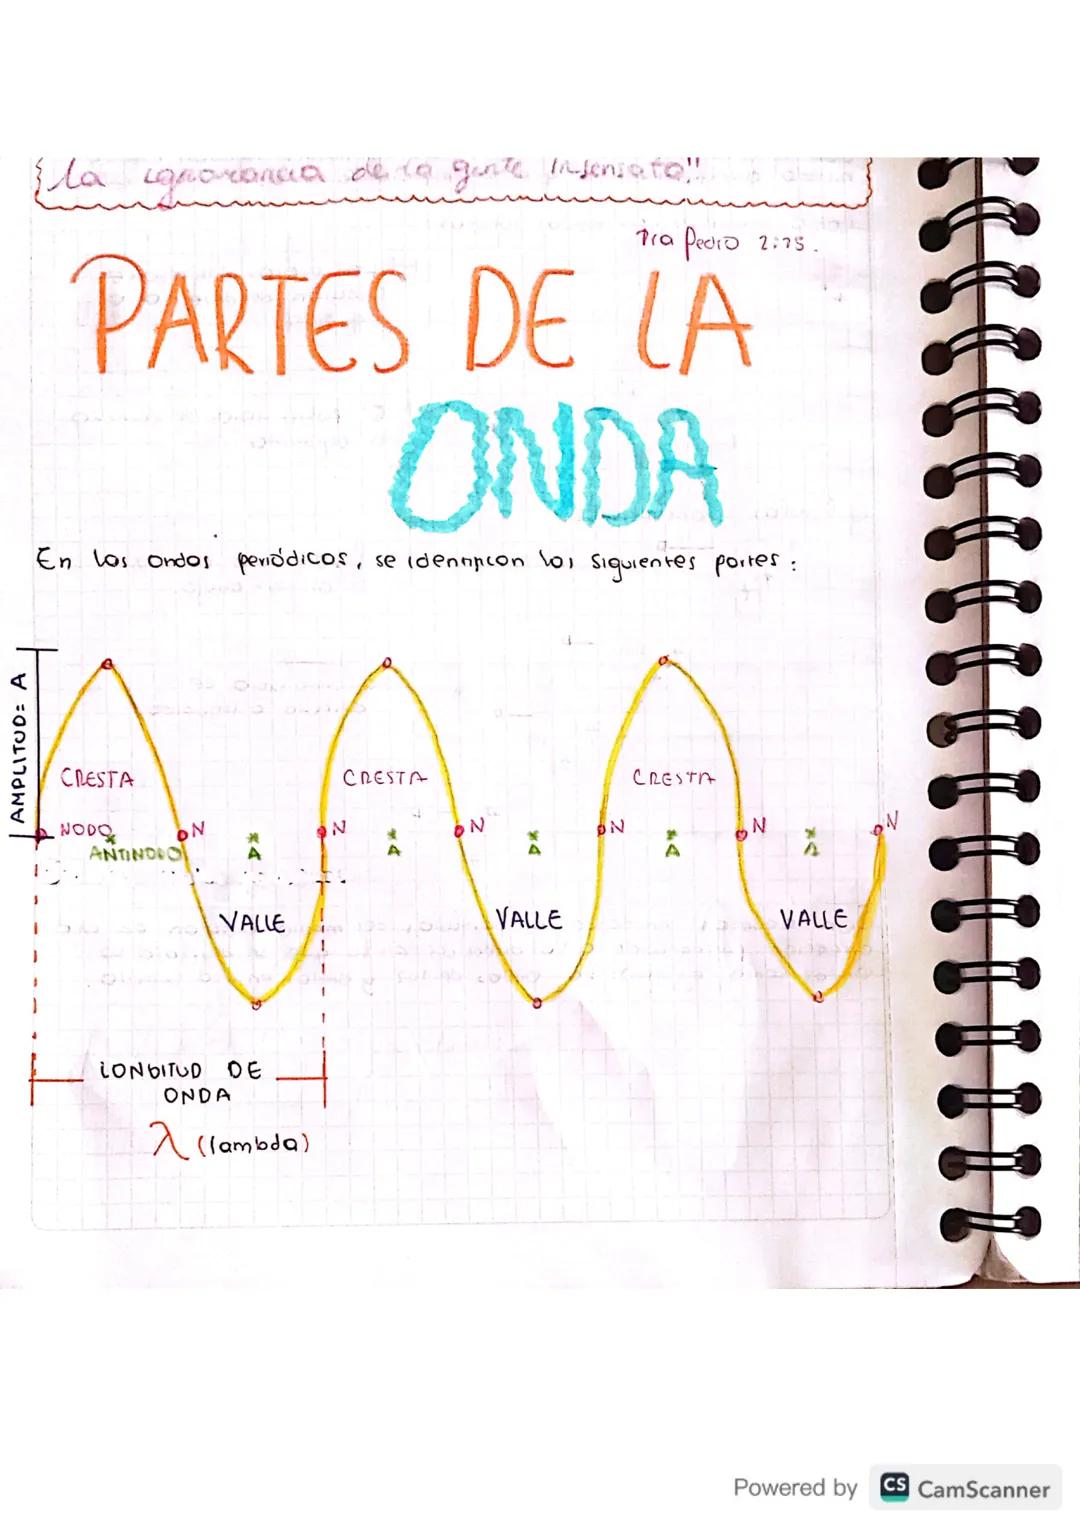 la ignorancia de la gente insensata"
1ra Pedro 2:15.
PARTES DE LA
ONDA
En las ondas periódicas, se identifican las siguientes partes:
AMPLITUD: A
CRESTA
CRESTA
CRESTA
NODO
N
N
N
N
N
N
ANTINODO
A
A
A
A
A
VALLE
VALLE
VALLE
LONGITUD DE
ONDA
λ (lambda)
Powered by CS CamScanner